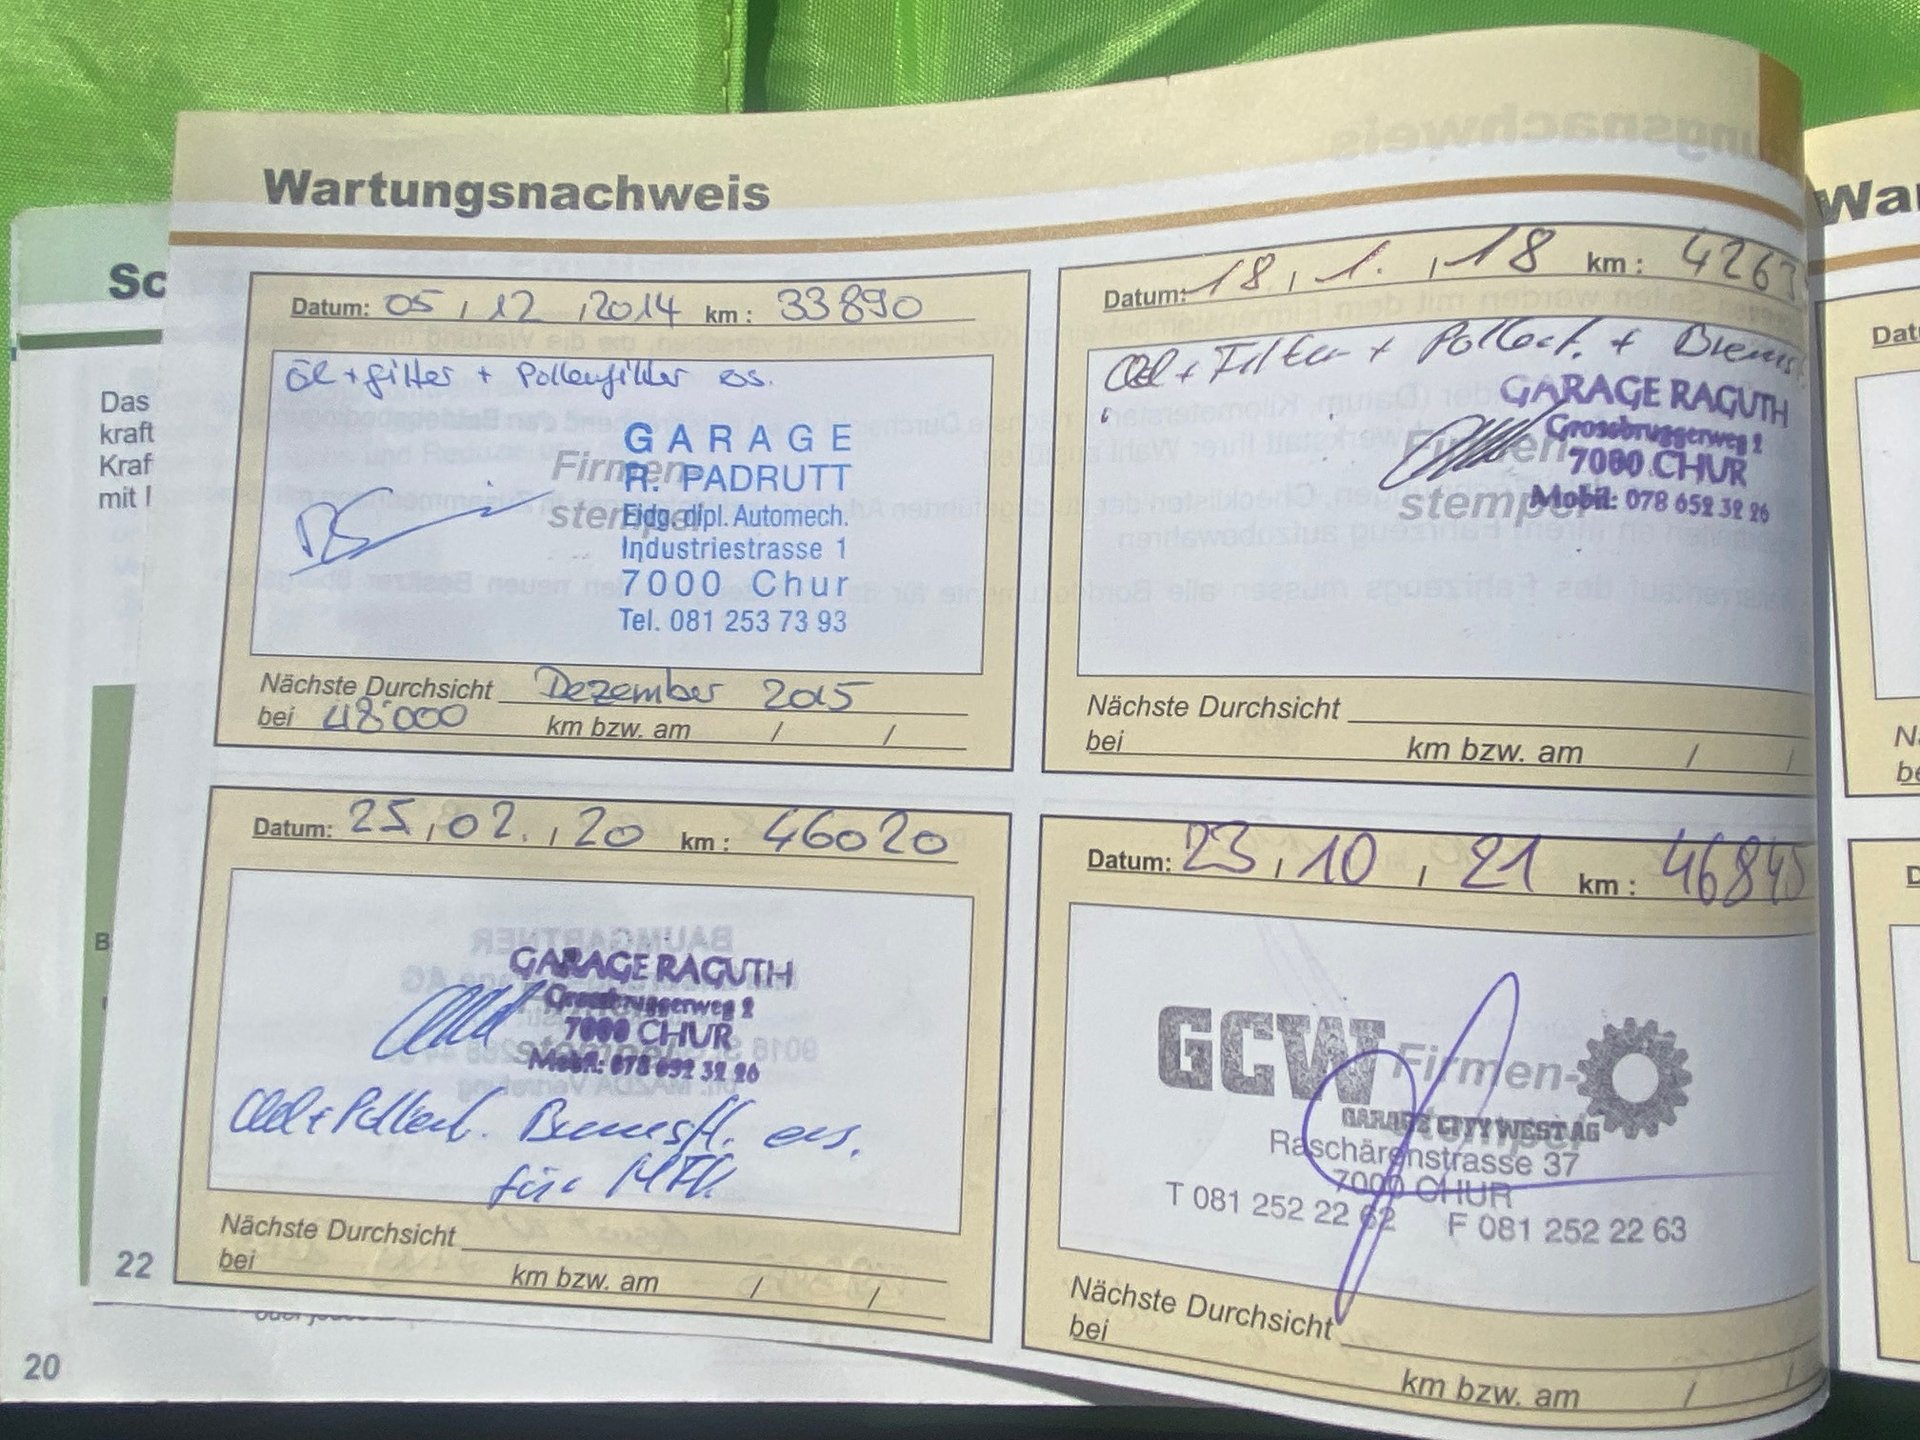 Wartungsnachweis
Datum: 05 / 12 / 2014 km : 33890
Öl + filter + Pollenfilter ers.
Firmen-
stempel
GARAGE
R. PADRUTT
Eidg. dipl. Automech.
Industriestrasse 1
7000 Chur
Tel. 081 253 73 93
Nächste Durchsicht Dezember 2015
bei 48'000 km bzw. am / /
Datum: 18 / 1. / 18 km : 4263
Oel + Filter + Pollenf. + Brems
GARAGE RAGUTH
Grossbruggerweg 2
7000 CHUR
Mobil: 078 652 32 26
Firmen-
stempel
Nächste Durchsicht
bei km bzw. am / /
Datum: 25 / 02. / 20 km : 46020
GARAGE RAGUTH
Grossbruggerweg 2
7000 CHUR
Mobil: 078 652 32 26
Oel + Pollenf. Bremsfl. ers.
für MFK
Nächste Durchsicht
bei km bzw. am / /
Datum: 23 / 10 / 21 km : 46845
GCW Firmen-
stempel
GARAGE CITY WEST AG
Raschärenstrasse 37
7000 CHUR
T 081 252 22 62 F 081 252 22 63
Nächste Durchsicht
bei
km bzw. am / /
22
Sc
Das
kraft
Kraf
mit
B
20
Wa
Dat
N
be
D